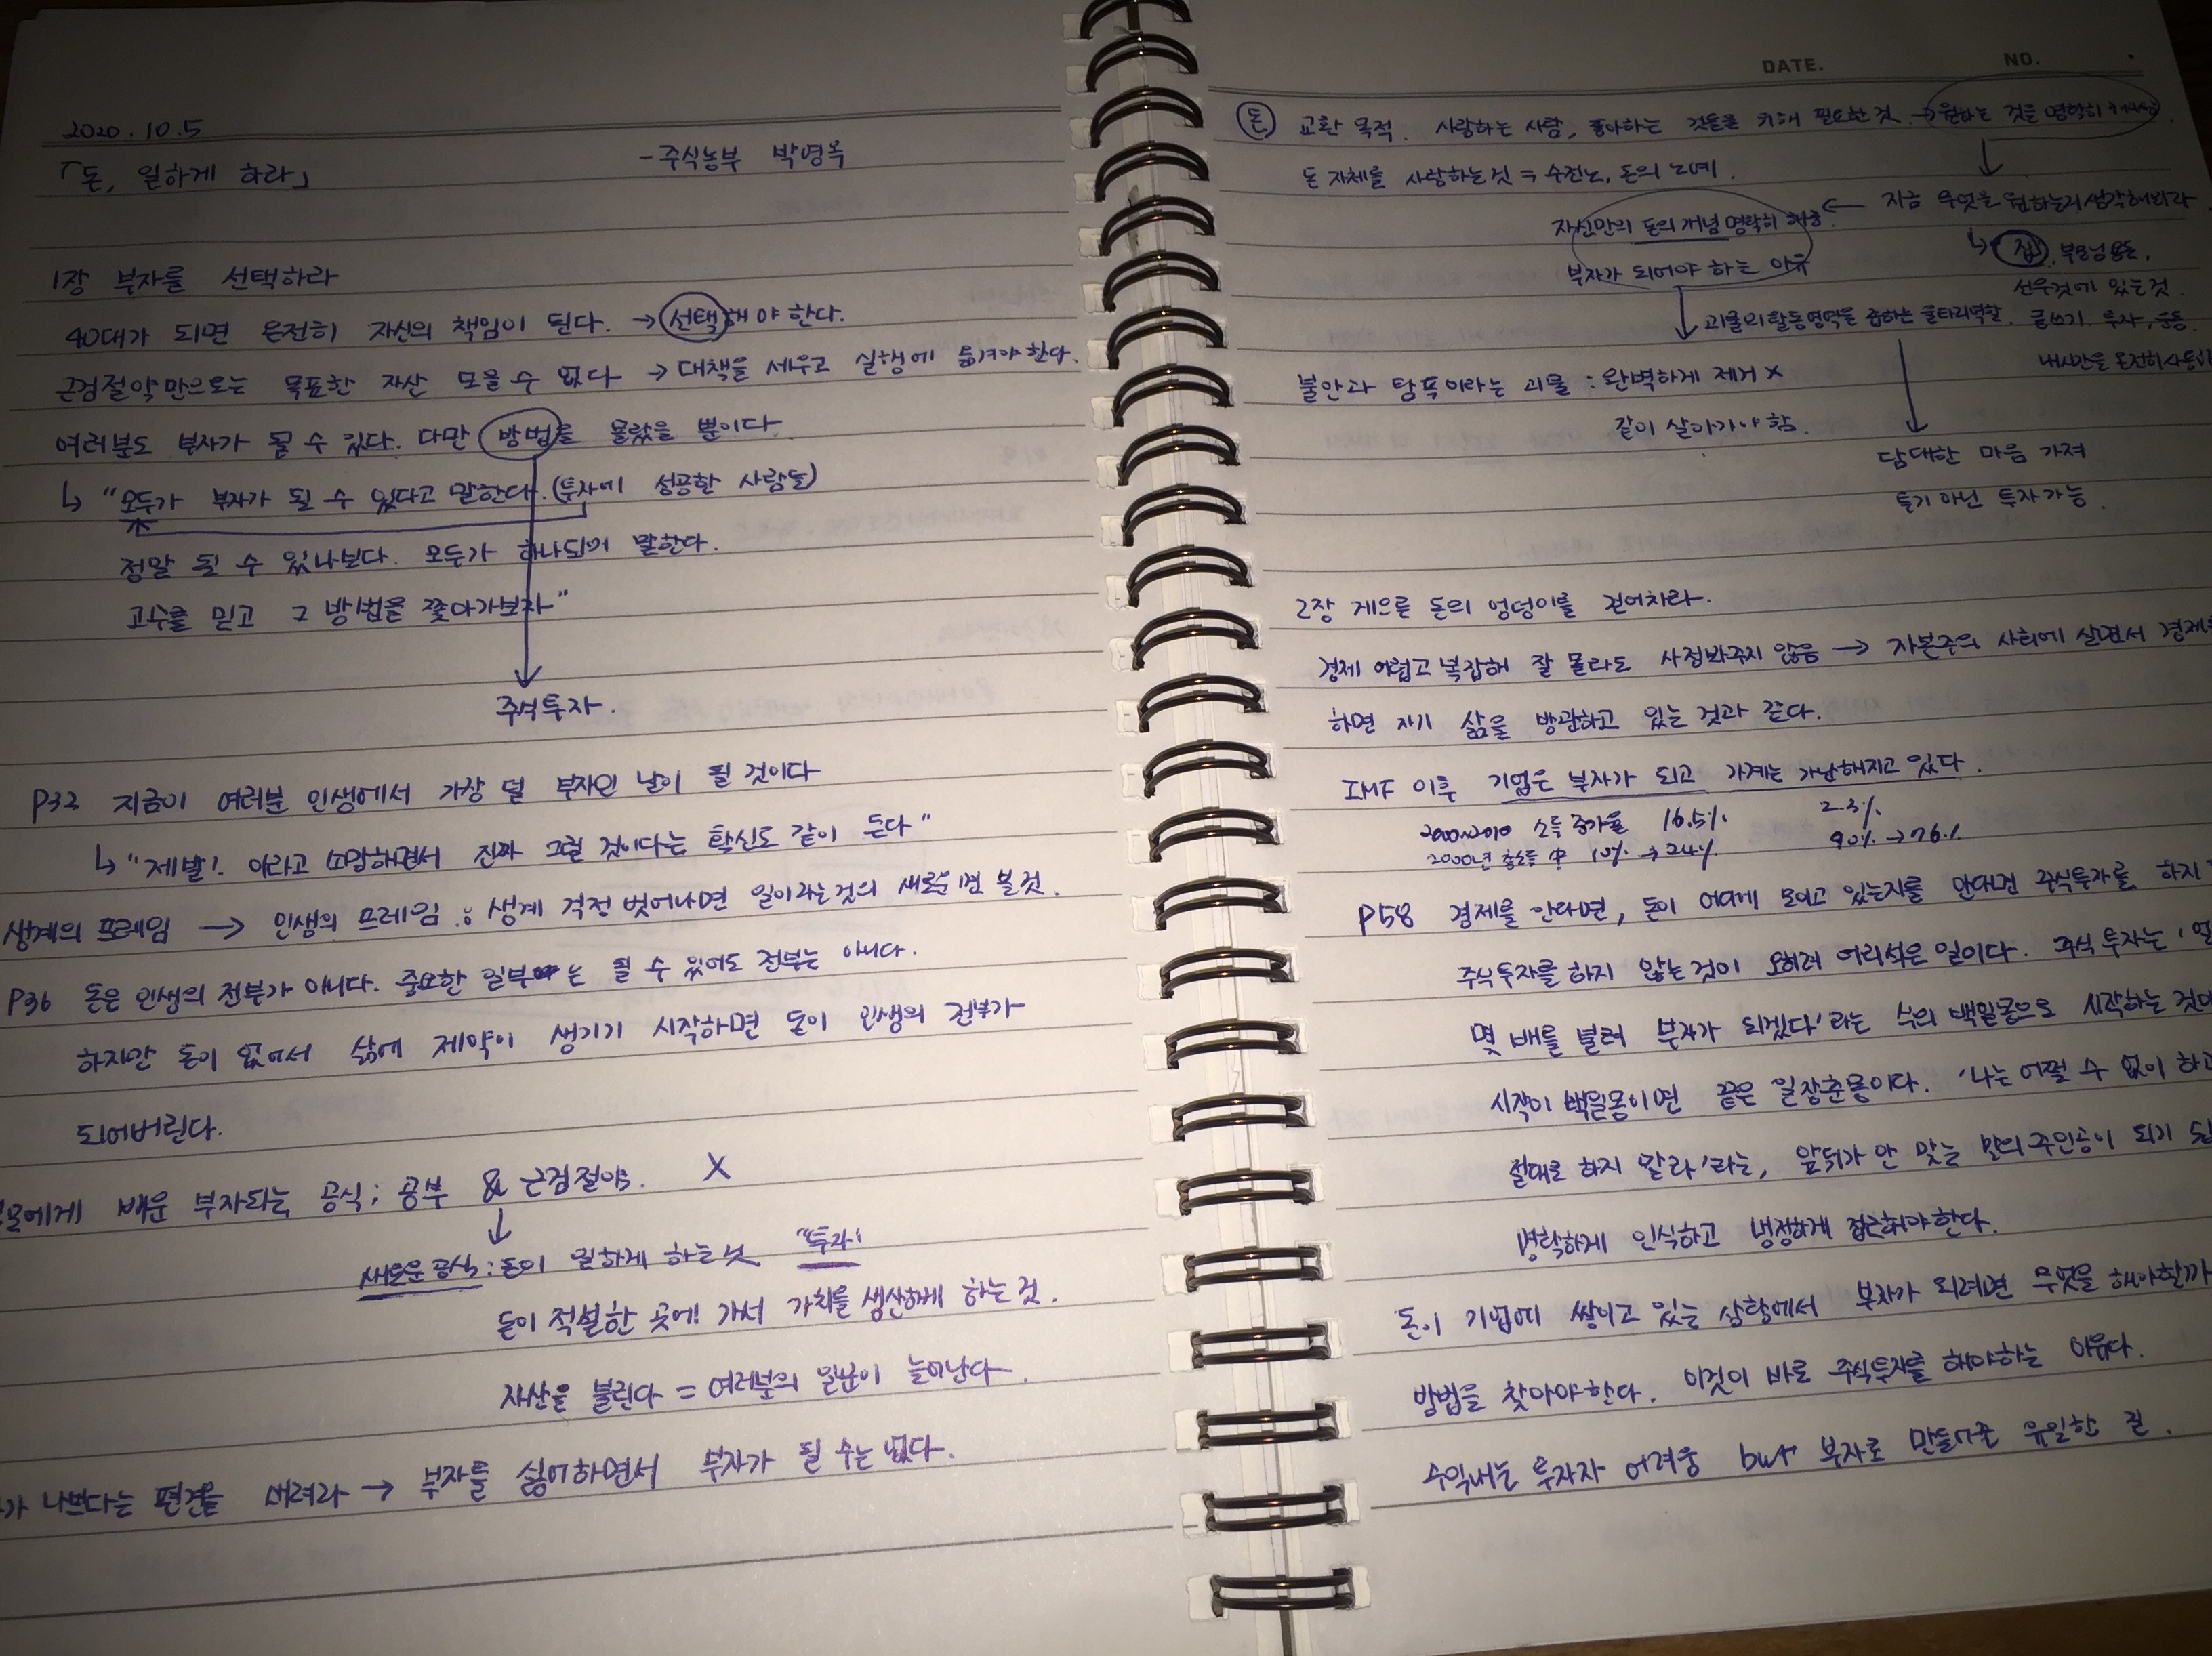 2020.10.5
「돈, 일하게 하라」 -주식농부 박영옥
1장 부자를 선택하라
40대가 되면 온전히 자신의 책임이 된다. → 선택해야 한다.
근검절약만으로는 목표한 자산 모을 수 없다 → 대책을 세우고 실행에 옮겨야한다.
여러분도 부자가 될 수 있다. 다만 방법을 몰랐을 뿐이다.
↳ "모두가 부자가 될 수 있다고 말한다. (투자에 성공한 사람들)
정말 될 수 있나보다. 모두가 하나되어 말한다.
고수를 믿고 그 방법을 쫓아가보자"
주식투자.
P32 지금이 여러분 인생에서 가장 덜 부자인 날이 될 것이다
↳ "제발! 이라고 소망하면서 진짜 그럴 것이다는 확신도 같이 든다"
생계의 프레임 → 인생의 프레임 : 생계 걱정 벗어나면 일이라는것의 새로운면 볼것.
P36 돈은 인생의 전부가 아니다. 중요한 일부는 될 수 있어도 전부는 아니다.
하지만 돈이 없어서 삶에 제약이 생기기 시작하면 돈이 인생의 전부가
되어버린다.
에게 배운 부자되는 공식: 공부 & 근검절약. X
↓
새로운공식: 돈이 일하게 하는것 "투자"
돈이 적절한 곳에 가서 가치를 생산하게 하는 것.
자산을 불린다 = 여러분의 일꾼이 늘어난다.
가 나쁘다는 편견을 버려라 → 부자를 싫어하면서 부자가 될 수는 없다.
DATE. NO.
돈 교환 목적. 사랑하는 사람, 좋아하는 것들을 위해 필요한 것 → 원하는 것을 명확히
돈 자체를 사랑하는것 = 수전노, 돈의 노예.
지금 무엇을 원하는지 생각해봐라
자신만의 돈의 개념 명확히 해야 ←
↳ 집, 부모님 용돈,
부자가 되어야 하는 이유
있는것.
괴물의 활동영역을 좁히는 울타리역할. 글쓰기, 투자, 운동.
내시간을 온전히
불안과 탐욕이라는 괴물 : 완벽하게 제거 X
같이 살아가야 함.
담대한 마음 가져
투기 아닌 투자 가능.
2장 게으른 돈의 엉덩이를 걷어차라.
경제 어렵고 복잡해 잘 몰라도 사정봐주지 않음 → 자본주의 사회에 살면서 경제를
하면 자기 삶을 방관하고 있는 것과 같다.
IMF 이후 기업은 부자가 되고 가계는 가난해지고 있다.
2000~2010 소득 증가율 16.5% 2.3%
2000년 총소득 中 10% → 24% 90% → 76%
P58 경제를 안다면, 돈이 어디에 모이고 있는지를 안다면 주식투자를 하지
주식투자를 하지 않는것이 오히려 어리석은 일이다. 주식 투자는 '얼
몇 배를 불려 부자가 되겠다'라는 식의 백일몽으로 시작하는 것이
시작이 백일몽이면 끝은 일장춘몽이다. '나는 어쩔 수 없이 하고
절대로 하지 말라'라는, 앞뒤가 안 맞는 말의 주인공이 되기 쉽
명확하게 인식하고 냉정하게 접근해야한다.
돈이 기업에 쌓이고 있는 상황에서 부자가 되려면 무엇을 해야할까
방법을 찾아야한다. 이것이 바로 주식투자를 해야하는 이유다.
수익내는 투자자 어려움 but 부자로 만들어줄 유일한 길.